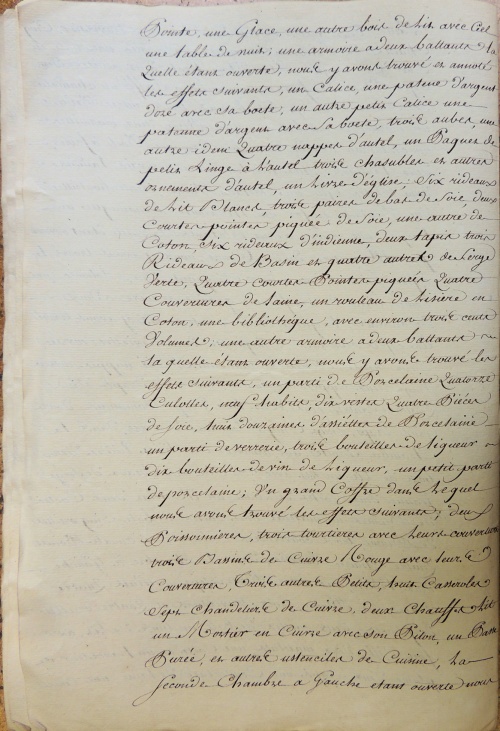 Pointe, une Glace, une autre bois de Lit avec Ciel
une table de nuit; une armoire a deux battants la
quelle étant ouverte, nous y avons trouvé et annoté
les effets suivants, un Calice, une patene d'argent
doré avec sa boete, un autre petit Calice une
patenne d'argent avec sa boete, trois aubes, une
autre idem Quatre nappes d'autel, un Paquet de
petit Linge à L'autel trois chasubles et autres
ornements d'autel, un Livre d'église; Six rideaux
de Lit Blancs, trois paires de bas de Soie, deux
Courtes-pointes piquée de Soie, une autre de
Coton, Six rideaux d'indienne, deux tapis trois
Rideaux de Basin et quatre autres de Serge
Verte, Quatre courtes Pointes piquées Quatre
Couvertures de Laine, un rouleau de Lisière en
Coton, une bibliothéque, avec environ trois cents
Volumes; une autre armoire a deux battants
la quelle étant ouverte, nous y avons trouvé les
effets suivants, un parti de Porcelaine Quatorze
Culottes, neuf habits dix vestes Quatre Pièces
de Soie, huit douzaines d'assiéttes de Porcelaine
un parti de verrerie, trois bouteilles de liqueur
dix bouteilles de vin de Liqueur, un petit parti
de porcelaine; Un grand Coffre dans Lequel
nous avons trouvé les effets suivants; deux
Poissonnières, trois tourtieres avec leurs couvertures
trois Bassins de Cuivre Rouge avec leurs
Couvertures, Trois autres Petits, huit Casseroles
Sept Chandeliers de Cuivre, deux Chauffes Lit
un Mortier en Cuivre avec son Pilon, un Passe
Purée, et autres ustenciles de Cuisine, La
Seconde Chambre a Gauche etant ouverte nous